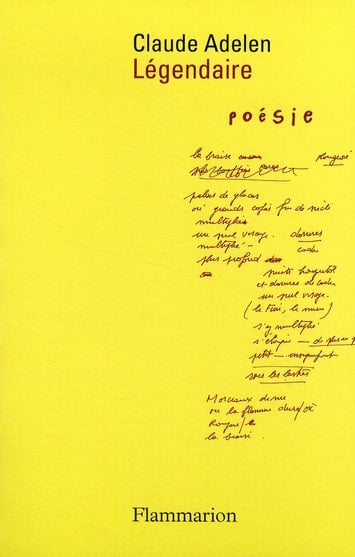 Claude Adelen
Légendaire
poésie
la braise
Rougeoie
palais de glaces
où grands cafés fin de siècle
multiplié
un seul visage. dorures
multiplié — cadre
plus profond
et dorures de cadre
un seul visage.
(le tien, le mien)
s'y multiplie
s'éloigne — de plus en p
petit —
sous les lustres
Morceaux de nue
ou la flamme
Rougeoie
la braise.
Flammarion